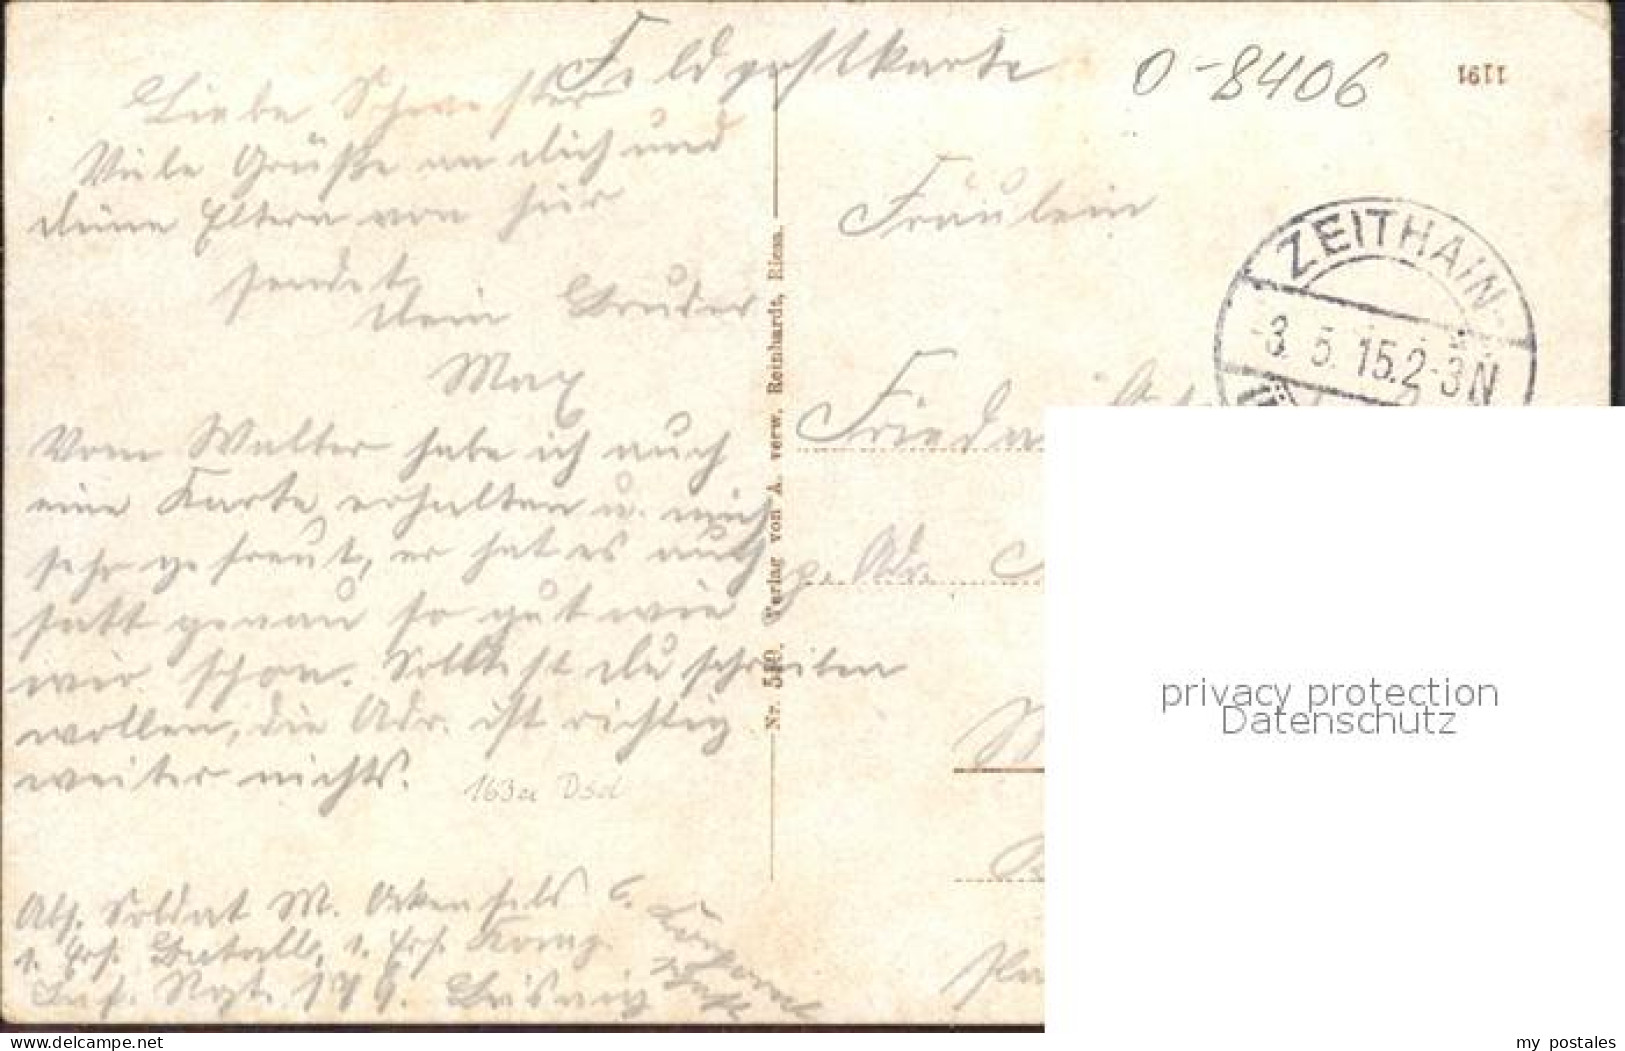 Feldpostkarte
O-8406
1191
Liebe Schwester
Viele Grüße an dich und
deine Eltern von hier
sendet
dein Bruder
Max
Vom Walter habe ich auch
eine Karte erhalten u. mich
sehr gefreut, er hat es auch
satt genau so gut wie
wir schon. Solltest du schreiben
wollen, die Adr. ist richtig
weiter nichts.
163a Dsd
Abs. Soldat M.
1. Ers. Bataill. 1. Ers. Komp.
Inf. Rgt. 179. Leisnig
Nr. 549. Verlag von A. verw. Reinhardt, Riesa.
Fräulein
Frieda
p. Adr.
ZEITHAIN
-3. 5. 15. 2-3 N
privacy protection
Datenschutz
www.delcampe.net
my_postales